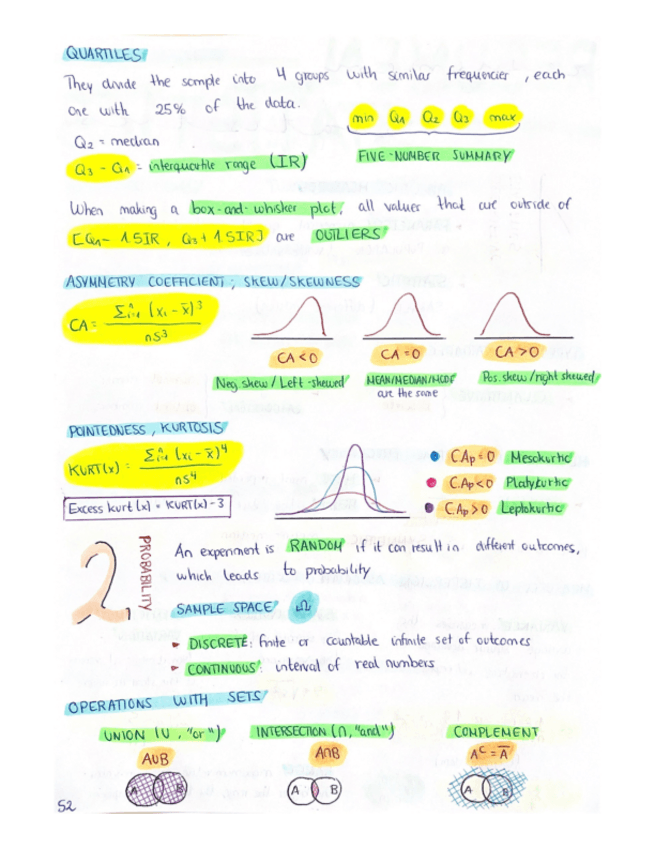 QUARTILES
They divide the sample into 4 groups with similar frequencies, each
one with 25% of the data.
min Q₁ Q₂ Q₃ max
Q₂ = median
FIVE-NUMBER SUMMARY
Q₃ - Q₁ = interquartile range (IR)
When making a box-and-whisker plot, all values that are outside of
[Q₁ - 1.5IR, Q₃ + 1.5IR] are OUTLIERS
ASYMMETRY COEFFICIENT, SKEW/SKEWNESS
CA = Σⁿᵢ₌₁ (xᵢ - x̄)³ / nS³
CA<0 CA=0 CA>0
Neg. skew / Left-skewed MEAN/MEDIAN/MODE Pos. skew / right skewed
are the same
POINTEDNESS, KURTOSIS
KURT(x) = Σⁿᵢ₌₁ (xᵢ - x̄)⁴ / nS⁴
C.Ap=0 Mesokurtic
C.Ap<0 Platykurtic
C.Ap>0 Leptokurtic
Excess kurt(x) = KURT(x) - 3
2. PROBABILITY
An experiment is RANDOM if it can result in different outcomes,
which leads to probability
SAMPLE SPACE Ω
DISCRETE: finite or countable infinite set of outcomes
CONTINUOUS: interval of real numbers
OPERATIONS WITH SETS
UNION (U, "or") INTERSECTION (∩, "and") COMPLEMENT
A∪B A∩B Aᶜ = Ā
A B A B A B
52